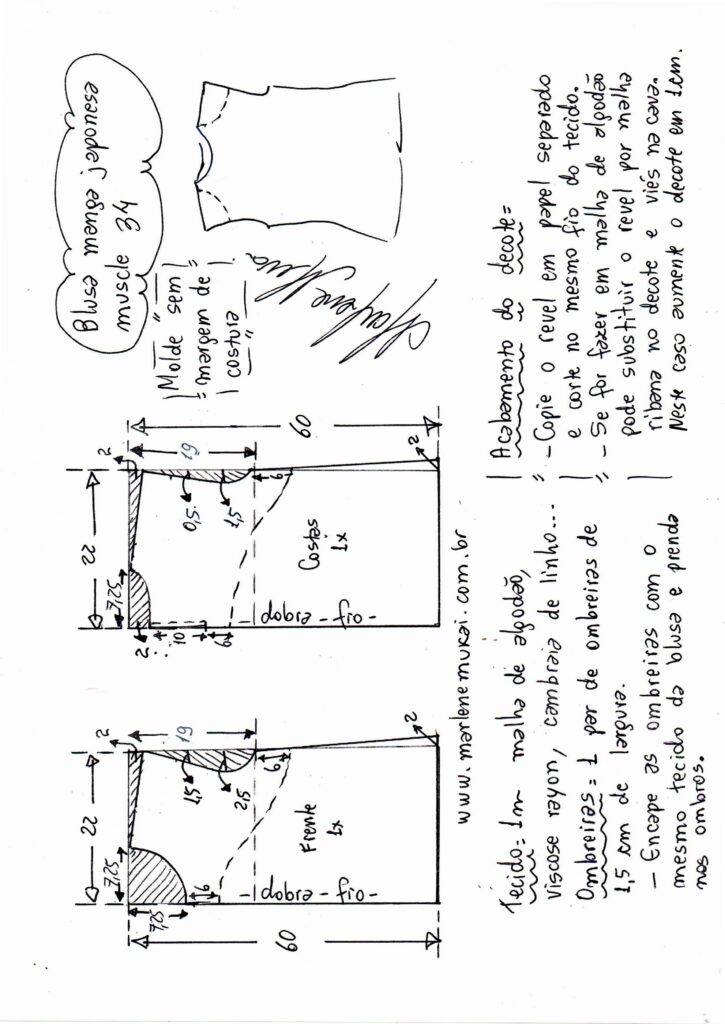 Blusa manga japonesa
muscle
"Molde sem
margem de
costura"
Marlene Mukai
60
2
19
22
0,5
1,5
6
7,25
Costas
1x
2
10
6
- dobra - fio -
2
60
22
7,25
7,25
2
19
1,5
2,5
6
Frente
1x
6
- dobra - fio -
2
www.marlenemukai.com.br
Tecido= 1m malha de algodão,
viscose rayon, cambraia de linho...
Ombreiras = 1 par de ombreiras de
1,5 cm de largura.
- Encape as ombreiras com o
mesmo tecido da blusa e prenda
nos ombros.
Acabamento do decote=
- Copie o revel em papel separado
e corte no mesmo fio do tecido.
- Se for fazer em malha de algodão
pode substituir o revel por malha
ribana no decote e viés na cava.
Neste caso aumente o decote em 1cm.